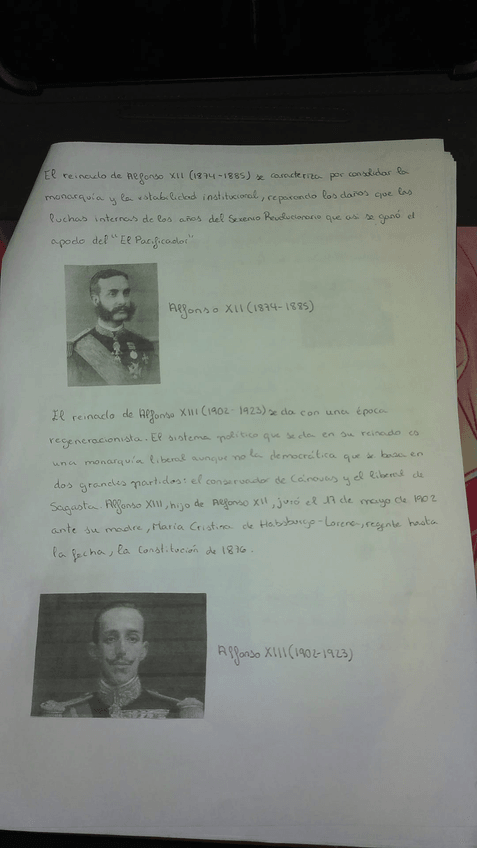 El reinado de Alfonso XII (1874-1885) se caracteriza por consolidar la
monarquía y la estabilidad institucional, reparando los daños que las
luchas internas de los años del Sexenio Revolucionario que así se ganó el
apodo del "El Pacificador"
Alfonso XII (1874-1885)
El reinado de Alfonso XIII (1902-1923) se da con una época
regeneracionista. El sistema político que se da en su reinado es
una monarquía liberal aunque no la democrática que se basa en
dos grandes partidos: el conservador de Cánovas y el liberal de
Sagasta. Alfonso XIII, hijo de Alfonso XII, juró el 17 de mayo de 1902
ante su madre, María Cristina de Habsburgo-Lorena, regente hasta
la fecha, la Constitución de 1876.
Alfonso XIII (1902-1923)